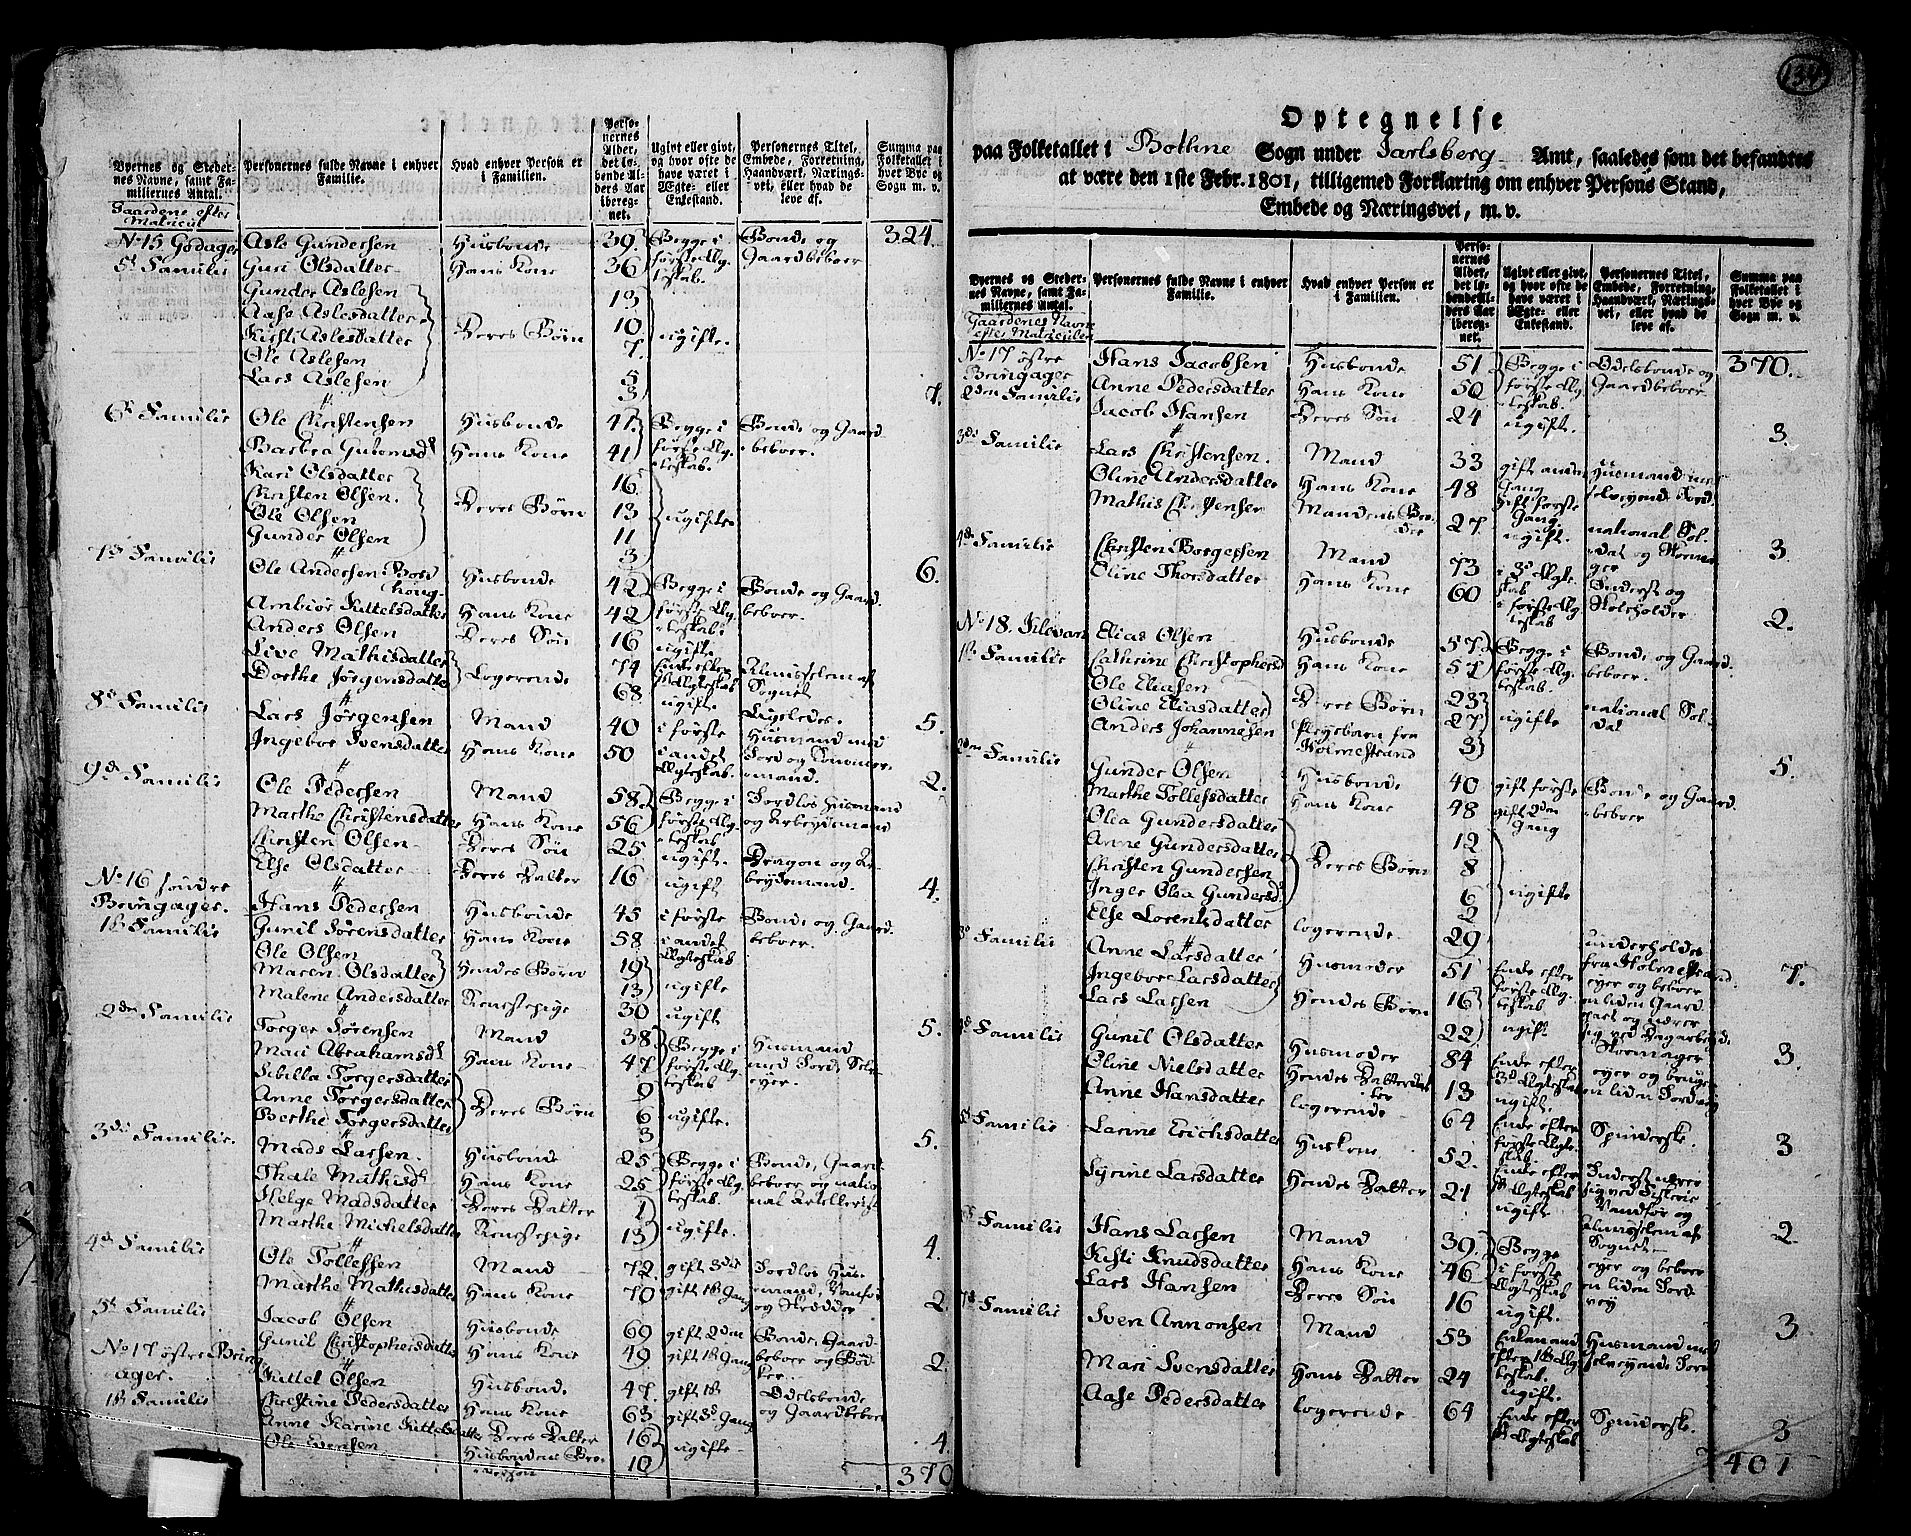 134
Byernes og Stedernes Navne, samt Familiernes Antal.
Personernes fulde Navne i enhver Familie.
Hvad enhver Person er i Familien.
Personernes Alder, det løbende Alders Aar iberegnet.
Ugivt eller givt, og hvor ofte de have været i Ægte- eller Enkestand.
Personernes Titel, Embede, Forretning, Haandværk, Næringsvei, eller hvad de leve af.
Summa paa Folketallet i hver Bye og Sogn m. v.
Gaardene efter Matricul
No 15 Godager Asle Gundersen Husbonde 39 Begge i Bonde og 324.
5te Familie Guri Olsdatter Hans Kone 36 første Æg- Gaardbeboer
Gunder Aslesen 13 teskab.
Aase Aslesdatter 10
Kirsti Aslesdatter Deres Børn 7. ugifte.
Ole Aslesen 5
Lars Aslesen 3 7.
6te Familie Ole Christensen Husbonde 47 Begge i Bonde og Gaard-
Barbra Gutormsd. Hans Kone 41 første Æg- beboer.
Kari Olsdatter 16 teskab.
Christen Olsen. Deres Børn 13
Ole Olsen 11 ugifte
Gunder Olsen 3 6.
7de Familie Ole Andersen Husbonde 42 Begge i Bonde og Gaard-
Ambiør Kittelsdatter Hans Kone 42 første Æg- beboer
Anders Olsen Deres Søn 16 teskab. ugift.
Live Mathisdatter Logerende 74 Enke efter Almisselem af
Dorthe Jørgensdatter 68 Ægteskab ugift. Sognet Ligeledes. 5.
8de Familie Lars Jørgensen Mand 40 i første Husmand med
Ingebor Svensdatter Hans Kone 50 i andet Ægteskab. Jord og Tømmermand. 2.
9de Familie Ole Pedersen Mand 58 Begge i Jordløs Husmand
Marthe Christensdatter Hans Kone 56 første Æg- og Arbeydsmand
Christen Olsen Deres Søn 25 teskab ugift. Dragon og Ar-
Else Olsdatter Deres Datter 16 ugift beydsmand. 4.
No 16 søndre Bringager.
1ste Familie Hans Pedersen Husbonde 45 i første Bonde og Gaard-
Gunil Sørensdatter Hans Kone 58 i andet Ægteskab beboer.
Ole Olsen Hendes Børn 19
Maren Olsdatter 13 ugifte
Malene Andersdatter Tienestepige 30 ugift 5.
2den Familie Torger Sørensen Mand 38 Begge i Husmand
Mari Abrahamsd. Hans Kone 47 første Æg- med Jord, Sele-
Sibilla Torgersdatter 9 teskab eyer.
Anne Torgersdatter Deres Børn 6 ugifte.
Berthe Torgersdatter 3 5.
3die Familie. Mads Larsen. Husbonde 25 Begge i Bonde, Gaard-
Thale Mathisd. Hans Kone 25 første Æg- beboer og natio-
Helge Madsdatter Deres Datter 1 teskab nal Artellerist
Marthe Michelsdatter Tienestepige 13 ugifte. 4.
4de Familie Ole Tollessen Mand 72. gift 3die Jordløs Hus-
Marthe Mathisdatter Hans Kone 70 gift 1ste Gang mand, Vanfør og Skrædder 2.
5te Familie Jacob Olsen Husbonde 69 gift 2den Bonde, Gaard-
Gunil Christophersdatter Hans Kone 49 gift 1ste Gang beboer og Bødker. 2.
No 17 østre Bringager.
1ste Familie Kittel Olsen Husbonde 47. gift 1ste Odelsbonde
Christine Pedersdatter Hans Kone 63 gift 3de Gang og Gaardbeboer
Anne Karine Kittelsdatter Deres Datter 16 ugifte
Ole Evensen Husbondens Brodersøn 10 4.
370
Optegnelse
paa Folketallet i Bothne Sogn under Jarlsberg Amt, saaledes som det befandtes
at være den 1ste Febr. 1801, tilligemed Forklaring om enhver Persons Stand,
Embede og Næringsvei, m. v.
Byernes og Stedernes Navne, samt Familiernes Antal.
Personernes fulde Navne i enhver Familie.
Hvad enhver Person er i Familien.
Personernes Alder, det løbende Alders Aar iberegnet.
Ugivt eller givt, og hvor ofte de have været i Ægte- eller Enkestand.
Personernes Titel, Embede, Forretning, Haandværk, Næringsvei, eller hvad de leve af.
Summa paa Folketallet i hver Bye og Sogn m. v.
Gaardenes Navne efter Matriculen
No 17 østre Bringager
2den Familie Hans Jacobsen Husbonde 51 Begge i Odelsbonde og 370.
Anne Pedersdatter Hans Kone 50 første Æg- Gaardbeboer
Jacob Hansen Deres Søn 24 teskab. ugift. 3.
3die Familie Lars Christensen. Mand 33 gift anden Gang Husmand med
Oline Andersdatter Hans Kone 48 gift første Gang selveyende Jord
Mathis Christensen Mandens Broder 27 ugift. national Soldat og Skomager 3.
4de Familie Christen Borgersen Mand 73 i 3de Ægteskab Inderst og
Oline Thorsdatter Hans Kone 60 i første Ægteskab Skoleholder 2.
No 18. Klevan
1ste Familie Elias Olsen Husbonde 57 Begge i Bonde og Gaard-
Cathrine Christophersd. Hans Kone 57 første Æg- beboer.
Ole Eliasen Deres Børn 23 teskab. national Soldat
Oline Eliasdatter 27 ugifte
Anders Johannesen Pleyebarn fra Holmestrand 3 5.
2den Familie Gunder Olsen Husbonde 40 gift første Bonde og Gaard-
Marthe Tollefsdatter Hans Kone 48 gift 2den Gang beboer
Olea Gundersdatter 12
Anne Gundersdatter Deres Børn 8
Christen Gundersen 6 ugifte
Inger Olea Gundersd. 2
Else Lorentsdatter logerende 29 underholdes fra Holmestrand. 7.
3de Familie Anne Larsdatter Husmoder 51 Enke efter eyer og beboer
Ingebor Larsdatter Hendes Børn 16 første Æg- en liden Gaard
Lars Larsen 22 teskab ugift part og nærer sig ved Dagarbeyde 3.
4de Familie Gunil Olsdatter Husmoder 84 Enke efter
Oline Nielsdatter Hendes Datterdatter 13 3de Ægteskab ugift. eyer og
Anne Hansdatter logerende 64 Enke efter første Ægteskab Spinderske. 3
5te Familie Larine Erichsdatter Huskone 52. Enke efter Inderst nærer
Syrine Larsdatter Hendes Datter 21 Ægteskab ugift sig ved Fiskerie Vandfør og Almisselem af Sognet 2.
6te Familie Hans Larsen Mand 39. Begge eyer og beboer
Kisti Knudsdatter Hans Kone 46 i første en liden Jord
Lars Hansen Deres Søn 16 Ægteskab ugift. 3.
7de Familie Sven Annonsen Mand 53 Enkemand Husmand med
efter 1ste Æg- selveyende Jord
Mari Svensdatter Hans Datter 24 teskab ugift.
Aase Pedersdatter logerende 64 Enke efter Ægteskab Spinderske. 3
401